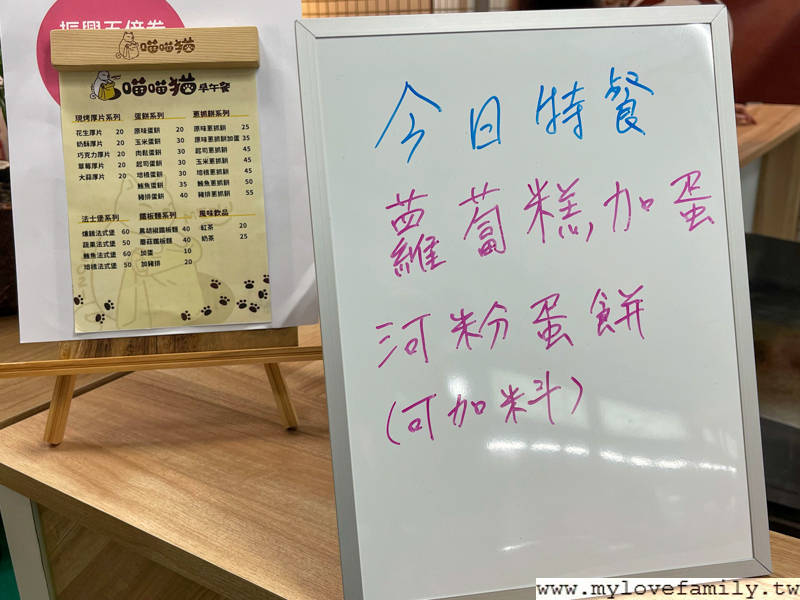 振興五倍券
喵喵貓
喵喵貓早午餐
現烤厚片系列
花生厚片 20
奶酥厚片 20
巧克力厚片 20
草莓厚片 20
大蒜厚片 20
蛋餅系列
原味蛋餅 20
玉米蛋餅 30
肉鬆蛋餅 30
起司蛋餅 30
培根蛋餅 30
鮪魚蛋餅 35
豬排蛋餅 40
蔥抓餅系列
原味蔥抓餅 25
原味蔥抓餅加蛋 35
起司蔥抓餅 45
玉米蔥抓餅 45
培根蔥抓餅 45
鮪魚蔥抓餅 50
豬排蔥抓餅 55
法士堡系列
燻雞法式堡 60
蔬果法式堡 50
鮪魚法式堡 60
培根法式堡 50
鐵板麵系列
黑胡椒鐵板麵 40
蘑菇鐵板麵 40
加蛋 10
加豬排 20
風味飲品
紅茶 20
奶茶 25
今日特餐
蘿蔔糕加蛋
河粉蛋餅
(可加料)
www.mylovefamily.tw